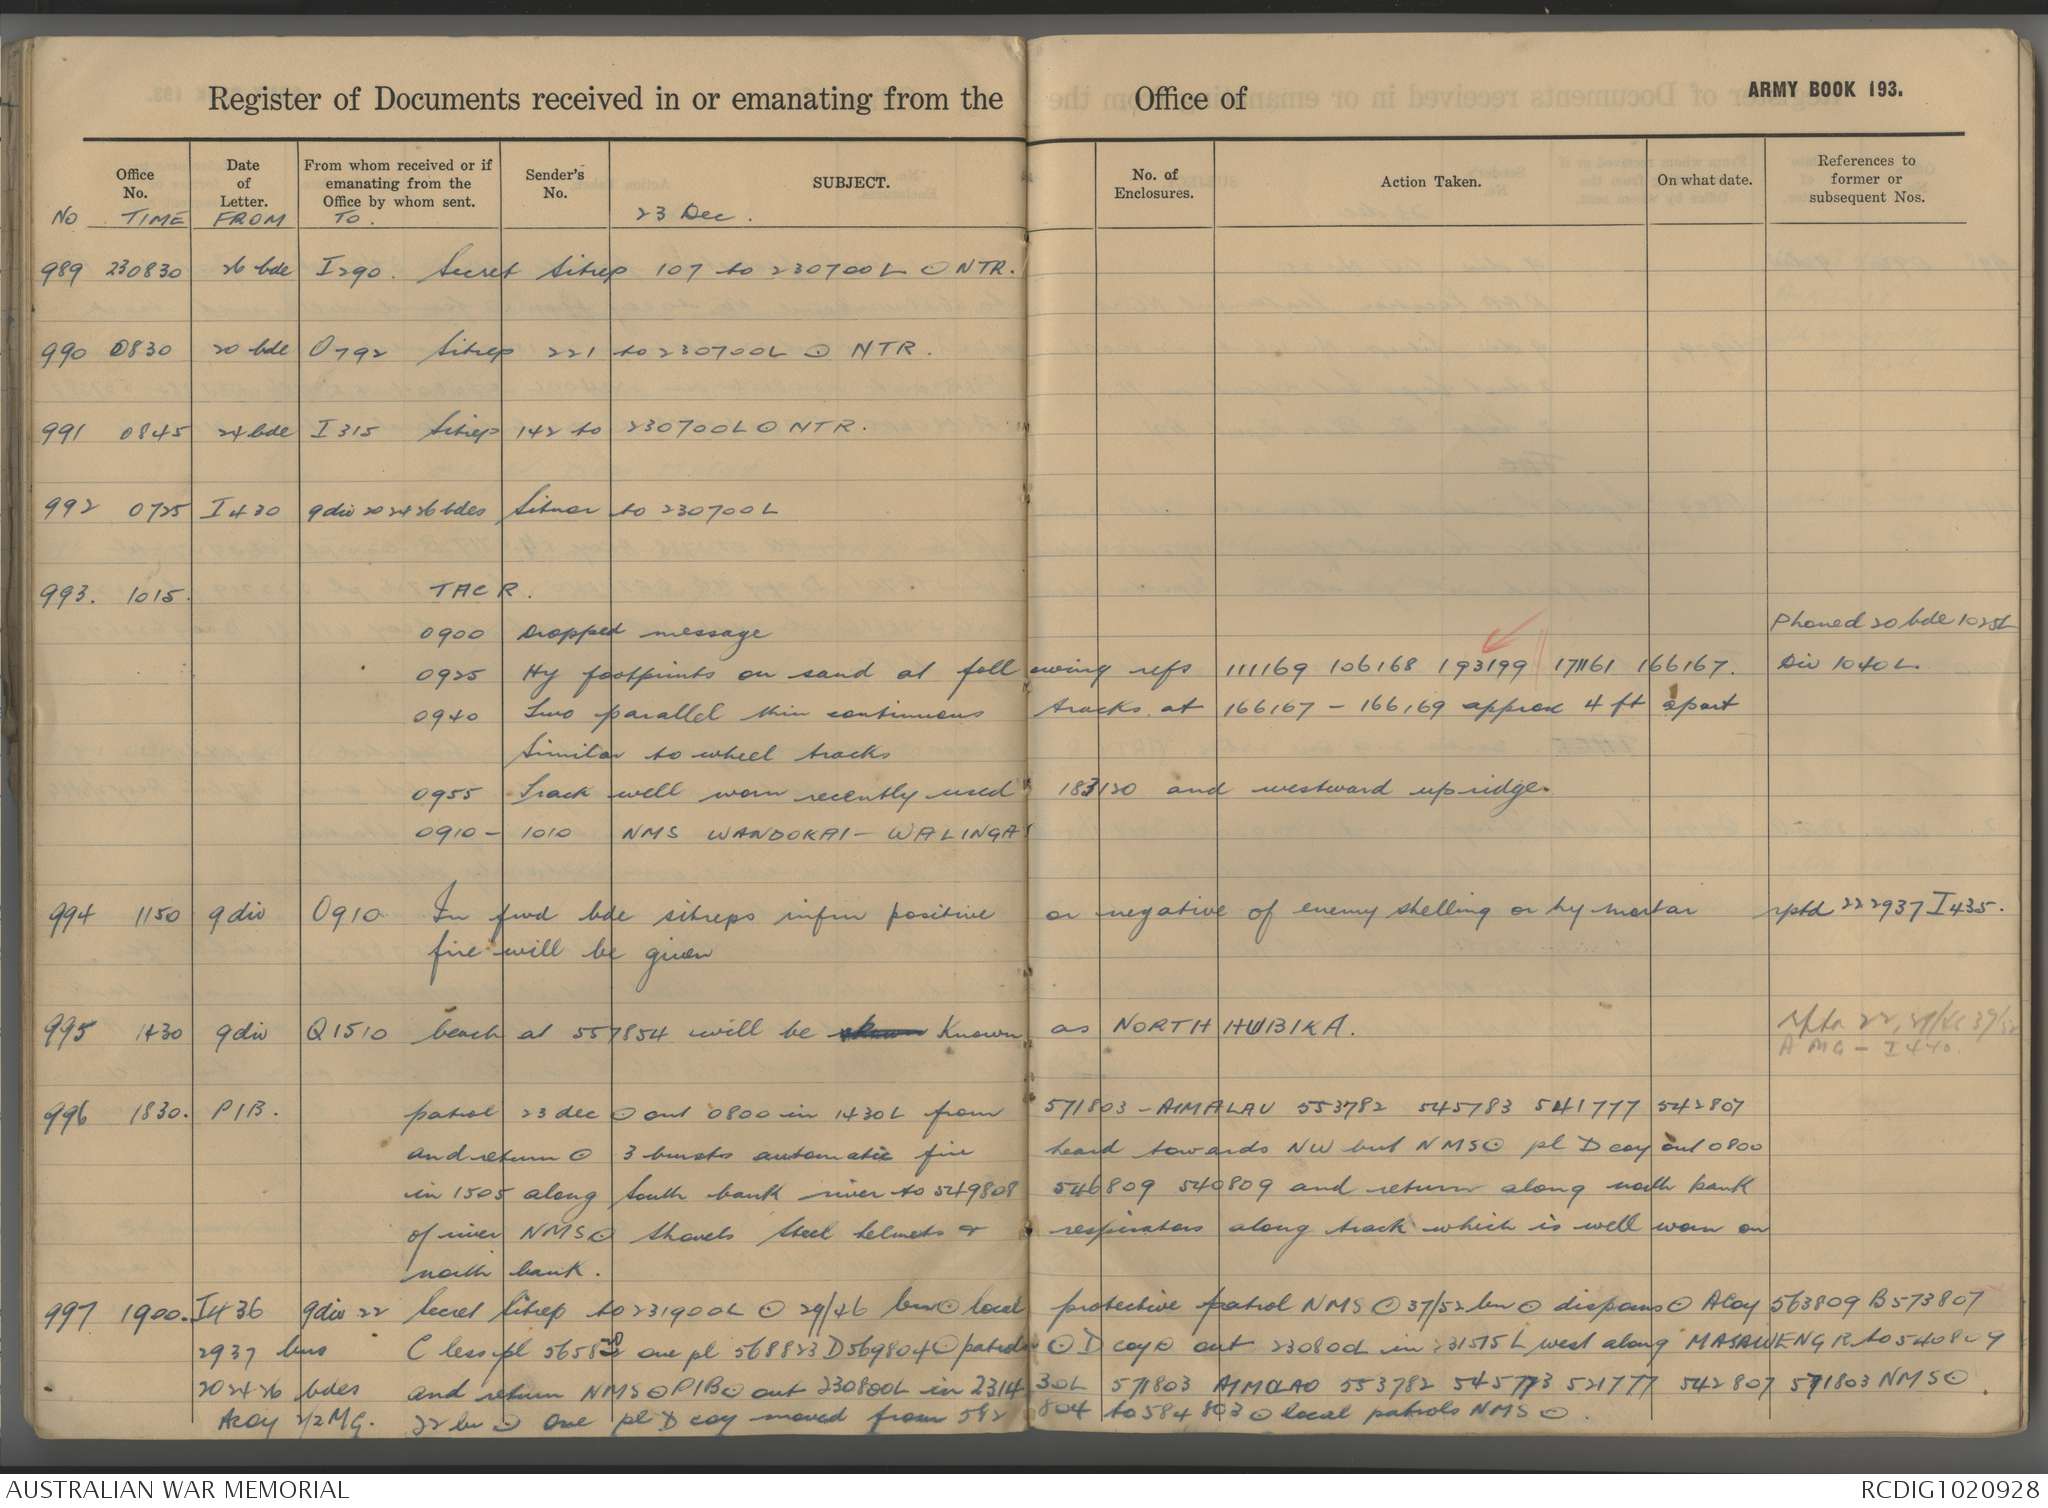 Register of Documents received in or emanating from the Office of ARMY BOOK 193.
Office No. Date of Letter. From whom received or if emanating from the Office by whom sent. Sender's No. SUBJECT. No. of Enclosures. Action Taken. On what date. References to former or subsequent Nos.
No TIME FROM TO. 23 Dec.
989 230830 26 bde I290. Secret Sitrep 107 to 230700L ⊙ NTR.
990 0830 20 bde O792 Sitrep 221 to 230700L ⊙ NTR.
991 0845 24 bde I315 Sitrep 142 to 230700L ⊙ NTR.
992 0725 I430 9 div 20 24 26 bdes Sitrep to 230700L
993. 1015. TAC R.
0900 Dropped message Phoned 20 bde 1025L
0925 Hy footprints on sand at following refs 111169 106168 193199 171161 166167. Div 1040L.
0940 Two parallel thin continuous tracks at 166167 - 166169 approx 4 ft apart
similar to wheel tracks
0955 Track well worn recently used 183120 and westward up ridge.
0910 - 1010 NMS WANDOKAI - WALINGAI
994 1150 9 div O910 In fwd bde sitreps infm positive or negative of enemy shelling or hy mortar rptd 22 2937 I435.
fire will be given
995 1430 9 div Q1510 beach at 557854 will be known as NORTH HUBIKA. rptd 22, 29/46 37/52
A MG - I440.
996 1830. PIB. patrol 23 dec ⊙ out 0800 in 1430L from 571803 - AIMALAU 553782 545783 541777 542807
and return ⊙ 3 bursts automatic fire heard towards NW but NMS ⊙ pl D coy out 0800
in 1505 along South bank river to 549808 546809 540809 and return along north bank
of river NMS ⊙ Shovels Steel helmets & respirators along track which is well worn on
north bank.
997 1900. I436 9 div 22 Secret Sitrep to 231900L ⊙ 29/46 bn ⊙ local protective patrol NMS ⊙ 37/52 bn ⊙ dispns ⊙ A Coy 563809 B 573807
2937 bns C less pl one pl 568823 D 569804 ⊙ patrols ⊙ D coy ⊙ out 230800L in 231515L west along MASAWENG R. to 540809
20 24 26 bdes and return NMS ⊙ PIB ⊙ out 230800L in 231430L 571803 AIMALAO 553782 545773 521777 542807 571803 NMS ⊙.
A coy 2/2 MG. 22 bn ⊙ One pl D coy moved from 592804 to 584803 ⊙ local patrols NMS ⊙.
AUSTRALIAN WAR MEMORIAL RCDIG1020928